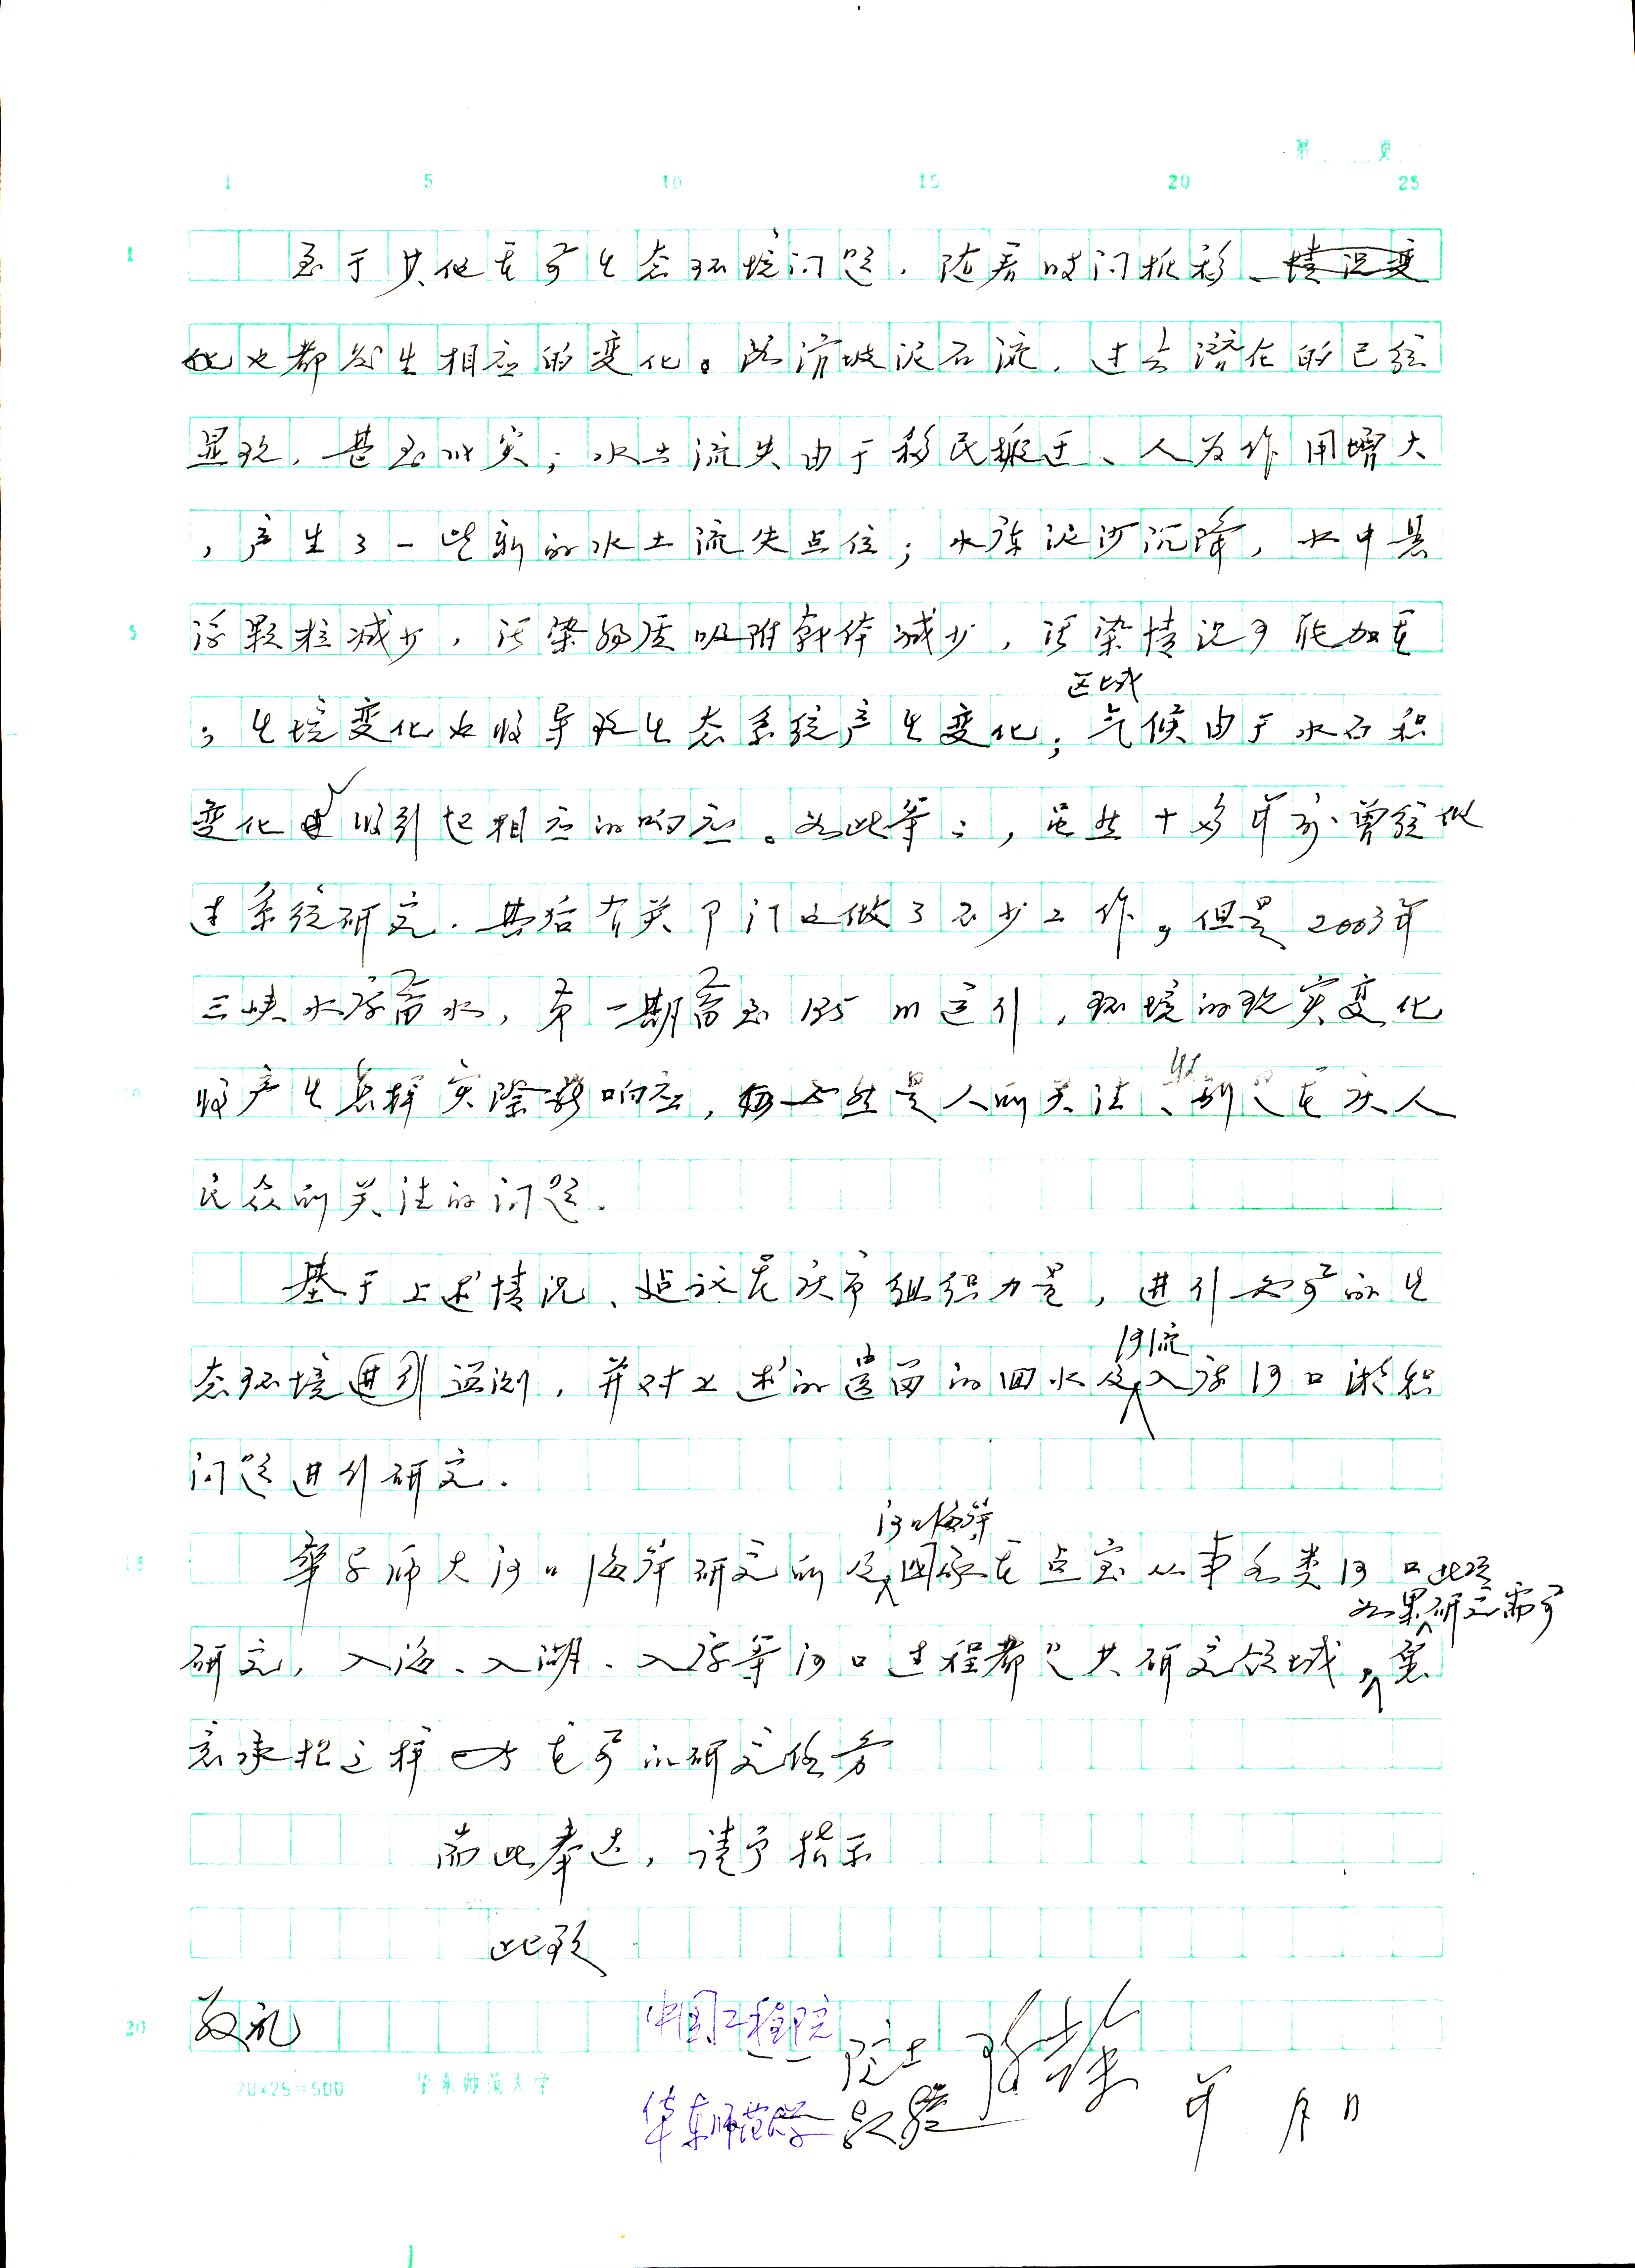 第 页
1 5 10 15 20 25
1
至于其他重要生态环境问题，随着时间推移、情况变
化也都发生相应的变化。如滑坡泥石流，过去潜在的已经
显现，甚至成灾；水土流失由于移民搬迁、人为作用增大
，产生了一些新的水土流失点位；水库泥沙沉降，水中悬
5
浮颗粒减少，污染物质吸附载体减少，污染情况可能加重
区域
；生境变化也将导致生态系统产生变化；气候由于水面积
变化也将引起相应的响应。如此等等，虽然十多年前曾经做
过系统研究．其后有关部门也做了不少工作，但是2003年
三峡水库蓄水，第一期蓄至135m运行，环境的现实变化
10
将产生怎样实际影响应，必然是人们关注、特别是重庆人
民众所关注的问题．
基于上述情况、建议重庆市组织力量，进行必要的生
河流
态环境进行监测，并对上述的遭遇的回水及入库河口淤积
问题进行研究．
河口海岸
15
华东师大河口海岸研究所及国家重点室从事各类河口
如果研究需要
研究，入海、入湖、入库等河口过程都是其研究领域，愿
意承担这样重要的研究任务
耑此奉达，请予指示
此致
20
敬礼
中国工程院
院士
20×25=500 华东师范大学
华东师范大学
年 月 日